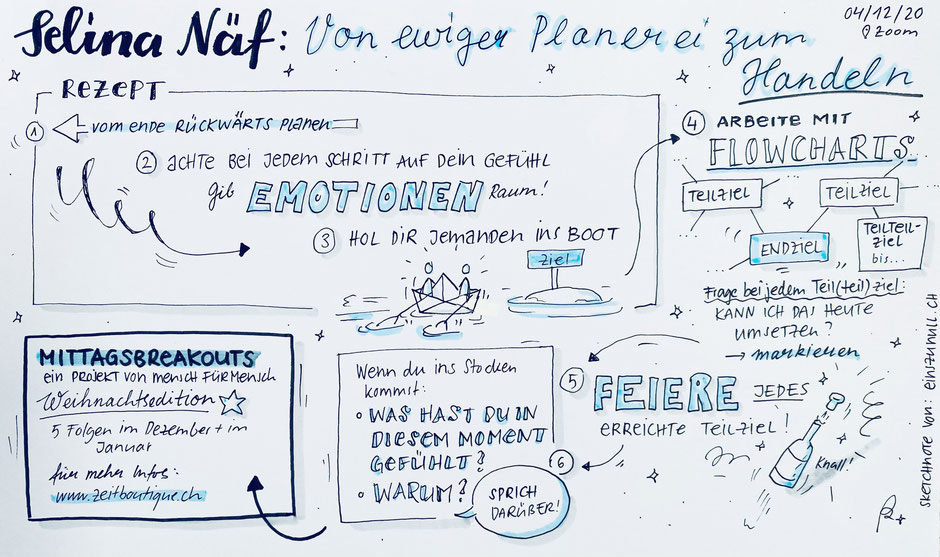 Selina Näf: Von ewiger Planerei zum
Handeln
04/12/20
Zoom
REZEPT
1 VOM ENDE RÜCKWÄRTS PLANEN
2 ACHTE BEI JEDEM SCHRITT AUF DEIN GEFÜHL
gib EMOTIONEN Raum!
3 HOL DIR JEMANDEN INS BOOT
Ziel
4 ARBEITE MIT
FLOWCHARTS
TEILZIEL
TEILZIEL
ENDZIEL
TEILTEIL-
ZIEL
bis...
Frage bei jedem Teil(teil)ziel:
KANN ICH DAS HEUTE
UMSETZEN?
→ markieren
5 FEIERE JEDES
ERREICHTE TEILZIEL!
Knall!
Wenn du ins Stocken
kommst:
• WAS HAST DU IN
DIESEM MOMENT
GEFÜHLT?
• WARUM?
6
SPRICH
DARÜBER!
MITTAGSBREAKOUTS
ein PROJEKT von mensch FÜR MENSCH
Weihnachtsedition
5 Folgen im Dezember + im
Januar
für mehr Infos:
www.zeitboutique.ch
SKETCHNOTE VON: einszunull.ch